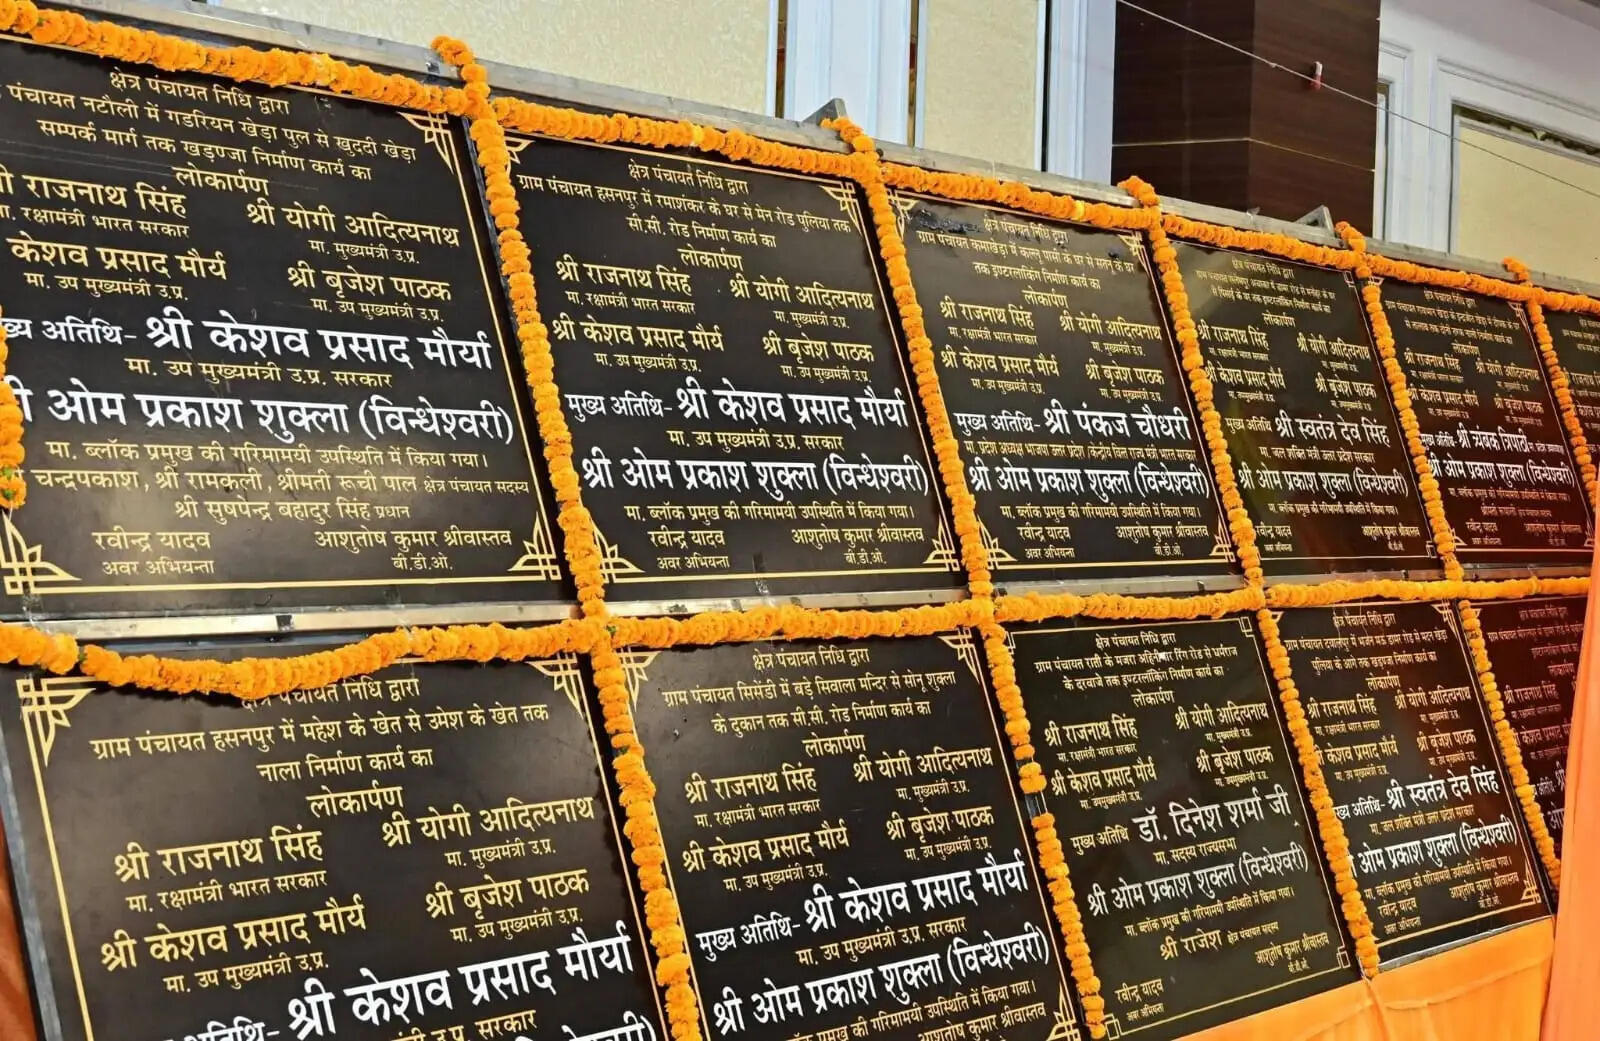 क्षेत्र पंचायत निधि द्वारा
पंचायत नटौली में गडरियन खेड़ा पुल से खुददी खेड़ा
सम्पर्क मार्ग तक खड़ण्जा निर्माण कार्य का
लोकार्पण
राजनाथ सिंह
श्री योगी आदित्यनाथ
मा. रक्षामंत्री भारत सरकार
मा. मुख्यमंत्री उ.प्र.
केशव प्रसाद मौर्य
श्री बृजेश पाठक
मा. उप मुख्यमंत्री उ.प्र.
मा. उप मुख्यमंत्री उ.प्र.
अतिथि- श्री केशव प्रसाद मौर्या
मा. उप मुख्यमंत्री उ.प्र. सरकार
ओम प्रकाश शुक्ला (विन्धेश्वरी)
मा. ब्लॉक प्रमुख की गरिमामयी उपस्थिति में किया गया।
चन्द्रपकाश, श्री रामकली, श्रीमती रूची पाल क्षेत्र पंचायत सदस्य
श्री सुषपेन्द्र बहादुर सिंह प्रधान
रवीन्द्र यादव
आशुतोष कुमार श्रीवास्तव
अवर अभियन्ता
बी.डी.ओ.
क्षेत्र पंचायत निधि द्वारा
ग्राम पंचायत हसनपुर में रमाशंकर के घर से मेन रोड पुलिया तक
सी.सी. रोड निर्माण कार्य का
लोकार्पण
श्री राजनाथ सिंह
श्री योगी आदित्यनाथ
मा. रक्षामंत्री भारत सरकार
मा. मुख्यमंत्री उ.प्र.
श्री केशव प्रसाद मौर्य
श्री बृजेश पाठक
मा. उप मुख्यमंत्री उ.प्र.
मा. उप मुख्यमंत्री उ.प्र.
मुख्य अतिथि- श्री केशव प्रसाद मौर्या
मा. उप मुख्यमंत्री उ.प्र. सरकार
श्री ओम प्रकाश शुक्ला (विन्धेश्वरी)
मा. ब्लॉक प्रमुख की गरिमामयी उपस्थिति में किया गया।
रवीन्द्र यादव
आशुतोष कुमार श्रीवास्तव
अवर अभियन्ता
बी.डी.ओ.
क्षेत्र पंचायत निधि द्वारा
ग्राम पंचायत कमाखेड़ा में कल्लू पासी के घर से के घर
तक इण्टरलाकिंग निर्माण कार्य का
लोकार्पण
श्री राजनाथ सिंह
श्री योगी आदित्यनाथ
मा. रक्षामंत्री भारत सरकार
मा. मुख्यमंत्री उ.प्र.
श्री केशव प्रसाद मौर्य
श्री बृजेश पाठक
मा. उप मुख्यमंत्री उ.प्र.
मा. उप मुख्यमंत्री उ.प्र.
मुख्य अतिथि- श्री पंकज चौधरी
मा. प्रदेश अध्यक्ष भाजपा उत्तर प्रदेश/केन्द्रीय वित्त राज्य मंत्री भारत सरकार
श्री ओम प्रकाश शुक्ला (विन्धेश्वरी)
मा. ब्लॉक प्रमुख की गरिमामयी उपस्थिति में किया गया।
रवीन्द्र यादव
आशुतोष कुमार श्रीवास्तव
अवर अभियन्ता
बी.डी.ओ.
क्षेत्र पंचायत निधि द्वारा
लोकार्पण
श्री राजनाथ सिंह
श्री योगी आदित्यनाथ
मा. रक्षामंत्री भारत सरकार
मा. मुख्यमंत्री उ.प्र.
केशव प्रसाद मौर्य
श्री बृजेश पाठक
मुख्य अतिथि श्री स्वतंत्र देव सिंह
मा. जल शक्ति मंत्री उत्तर प्रदेश सरकार
श्री ओम प्रकाश शुक्ला (विन्धेश्वरी)
मा. ब्लॉक प्रमुख की गरिमामयी उपस्थिति में किया गया।
रवीन्द्र यादव
आशुतोष कुमार श्रीवास्तव
अवर अभियन्ता
बी.डी.ओ.
लोकार्पण
श्री राजनाथ सिंह
श्री योगी आदित्यनाथ
श्री केशव प्रसाद मौर्य
श्री बृजेश पाठक
मुख्य अतिथि श्री त्र्यंबक त्रिपाठी
श्री ओम प्रकाश शुक्ला (विन्धेश्वरी)
रवीन्द्र यादव
आशुतोष कुमार श्रीवास्तव
क्षेत्र पंचायत निधि द्वारा
ग्राम पंचायत हसनपुर में महेश के खेत से उमेश के खेत तक
नाला निर्माण कार्य का
लोकार्पण
श्री राजनाथ सिंह
श्री योगी आदित्यनाथ
मा. रक्षामंत्री भारत सरकार
मा. मुख्यमंत्री उ.प्र.
श्री केशव प्रसाद मौर्य
श्री बृजेश पाठक
मा. उप मुख्यमंत्री उ.प्र.
मा. उप मुख्यमंत्री उ.प्र.
अतिथि- श्री केशव प्रसाद मौर्या
उ.प्र. सरकार
क्षेत्र पंचायत निधि द्वारा
ग्राम पंचायत सिसेंडी में बड़े सिवाला मन्दिर से सोनू शुक्ला
के दुकान तक सी.सी. रोड निर्माण कार्य का
लोकार्पण
श्री राजनाथ सिंह
श्री योगी आदित्यनाथ
मा. रक्षामंत्री भारत सरकार
मा. मुख्यमंत्री उ.प्र.
श्री केशव प्रसाद मौर्य
श्री बृजेश पाठक
मा. उप मुख्यमंत्री उ.प्र.
मा. उप मुख्यमंत्री उ.प्र.
मुख्य अतिथि- श्री केशव प्रसाद मौर्या
मा. उप मुख्यमंत्री उ.प्र. सरकार
श्री ओम प्रकाश शुक्ला (विन्धेश्वरी)
प्रमुख की गरिमामयी उपस्थिति में किया गया।
आशुतोष कुमार श्रीवास्तव
क्षेत्र पंचायत निधि द्वारा
ग्राम पंचायत राती के मजरा रिंग रोड से धर्मराज
के दरवाजे तक इण्टरलॉकिंग निर्माण कार्य का
लोकार्पण
श्री राजनाथ सिंह
श्री योगी आदित्यनाथ
मा. रक्षामंत्री भारत सरकार
मा. मुख्यमंत्री उ.प्र.
श्री केशव प्रसाद मौर्य
श्री बृजेश पाठक
मुख्य अतिथि डॉ. दिनेश शर्मा जी
मा. सदस्य राज्यसभा
श्री ओम प्रकाश शुक्ला (विन्धेश्वरी)
मा. ब्लॉक प्रमुख की गरिमामयी उपस्थिति में किया गया।
श्री राजेश क्षेत्र पंचायत सदस्य
रवीन्द्र यादव
आशुतोष कुमार श्रीवास्तव
अवर अभियन्ता
बी.डी.ओ.
क्षेत्र पंचायत निधि द्वारा
पुलिया के आगे तक खड़ण्जा निर्माण कार्य का
लोकार्पण
श्री राजनाथ सिंह
श्री योगी आदित्यनाथ
मा. रक्षामंत्री भारत सरकार
मा. मुख्यमंत्री उ.प्र.
केशव प्रसाद मौर्य
श्री बृजेश पाठक
मुख्य अतिथि- श्री स्वतंत्र देव सिंह
मा. जल शक्ति मंत्री उत्तर प्रदेश सरकार
ओम प्रकाश शुक्ला (विन्धेश्वरी)
मा. ब्लॉक प्रमुख की गरिमामयी उपस्थिति में किया गया।
रवीन्द्र यादव
आशुतोष कुमार श्रीवास्तव
अवर अभियन्ता
बी.डी.ओ.
श्री राजनाथ सिंह